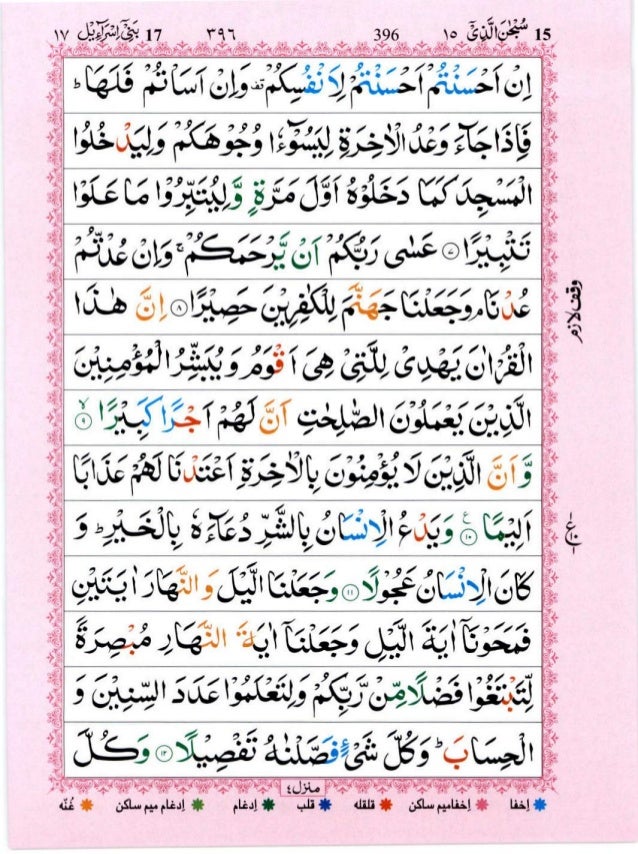 15 سُبْحٰنَ الَّذِیْۤ ١٥ 396 ٣٩٦ 17 بَنِیْۤ اِسْرَآءِیْل ١٧
اِنْ اَحْسَنْتُمْ اَحْسَنْتُمْ لِاَنْفُسِكُمْ ۫ وَاِنْ اَسَاْتُمْ فَلَهَا ؕ
فَاِذَا جَآءَ وَعْدُ الْاٰخِرَةِ لِیَسُوْٓءٗا وُجُوْهَكُمْ وَلِیَدْخُلُوا
الْمَسْجِدَ كَمَا دَخَلُوْهُ اَوَّلَ مَرَّةٍ وَّلِیُتَبِّرُوْا مَا عَلَوْا
تَتْبِیْرًا ﴿٧﴾ عَسٰی رَبُّكُمْ اَنْ یَّرْحَمَكُمْ ۚ وَاِنْ عُدْتُّمْ
عُدْنَا ۘ وَجَعَلْنَا جَهَنَّمَ لِلْكٰفِرِیْنَ حَصِیْرًا ﴿٨﴾ اِنَّ هٰذَا
وقف لازم
الْقُرْاٰنَ یَهْدِیْ لِلَّتِیْ هِیَ اَقْوَمُ وَیُبَشِّرُ الْمُؤْمِنِیْنَ
الَّذِیْنَ یَعْمَلُوْنَ الصّٰلِحٰتِ اَنَّ لَهُمْ اَجْرًا كَبِیْرًا ﴿٩﴾ ۙ
وَّاَنَّ الَّذِیْنَ لَا یُؤْمِنُوْنَ بِالْاٰخِرَةِ اَعْتَدْنَا لَهُمْ عَذَابًا
اَلِیْمًا ﴿١٠﴾ ع وَیَدْعُ الْاِنْسَانُ بِالشَّرِّ دُعَآءَهٗ بِالْخَیْرِ ؕ وَ
كَانَ الْاِنْسَانُ عَجُوْلًا ﴿١١﴾ وَجَعَلْنَا الَّیْلَ وَالنَّهَارَ اٰیَتَیْنِ
فَمَحَوْنَاۤ اٰیَةَ الَّیْلِ وَجَعَلْنَاۤ اٰیَةَ النَّهَارِ مُبْصِرَةً
لِّتَبْتَغُوْا فَضْلًا مِّنْ رَّبِّكُمْ وَلِتَعْلَمُوْا عَدَدَ السِّنِیْنَ وَ
الْحِسَابَ ؕ وَكُلَّ شَیْءٍ فَصَّلْنٰهُ تَفْصِیْلًا ﴿١٢﴾ وَكُلَّ
منزل ٤
اِخفا اِخفامیم ساکن قلقله قلب اِدغام اِدغام میم ساکن غُنّه